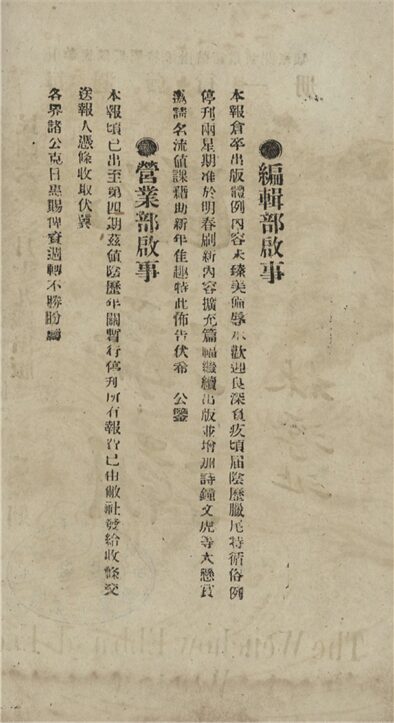 ●編輯部啟事
本報倉卒出版體例內容未臻美備辱承歡迎良深負疚頃屆陰歷臘尾特循俗例
停刊兩星期准於明春刷新內容擴充篇幅繼續出版並增加詩鐘文虎等大懸賞
邀請名流值課藉助新年佳趣特此佈告伏希 公鑒
●營業部啟事
本報頃已出至第四期茲值陰歷年關暫行停刊所有報資已由敝社發給收條交
送報人憑條收取伏冀
各界諸公克日惠賜俾資週轉不勝盼禱
The Wenchow